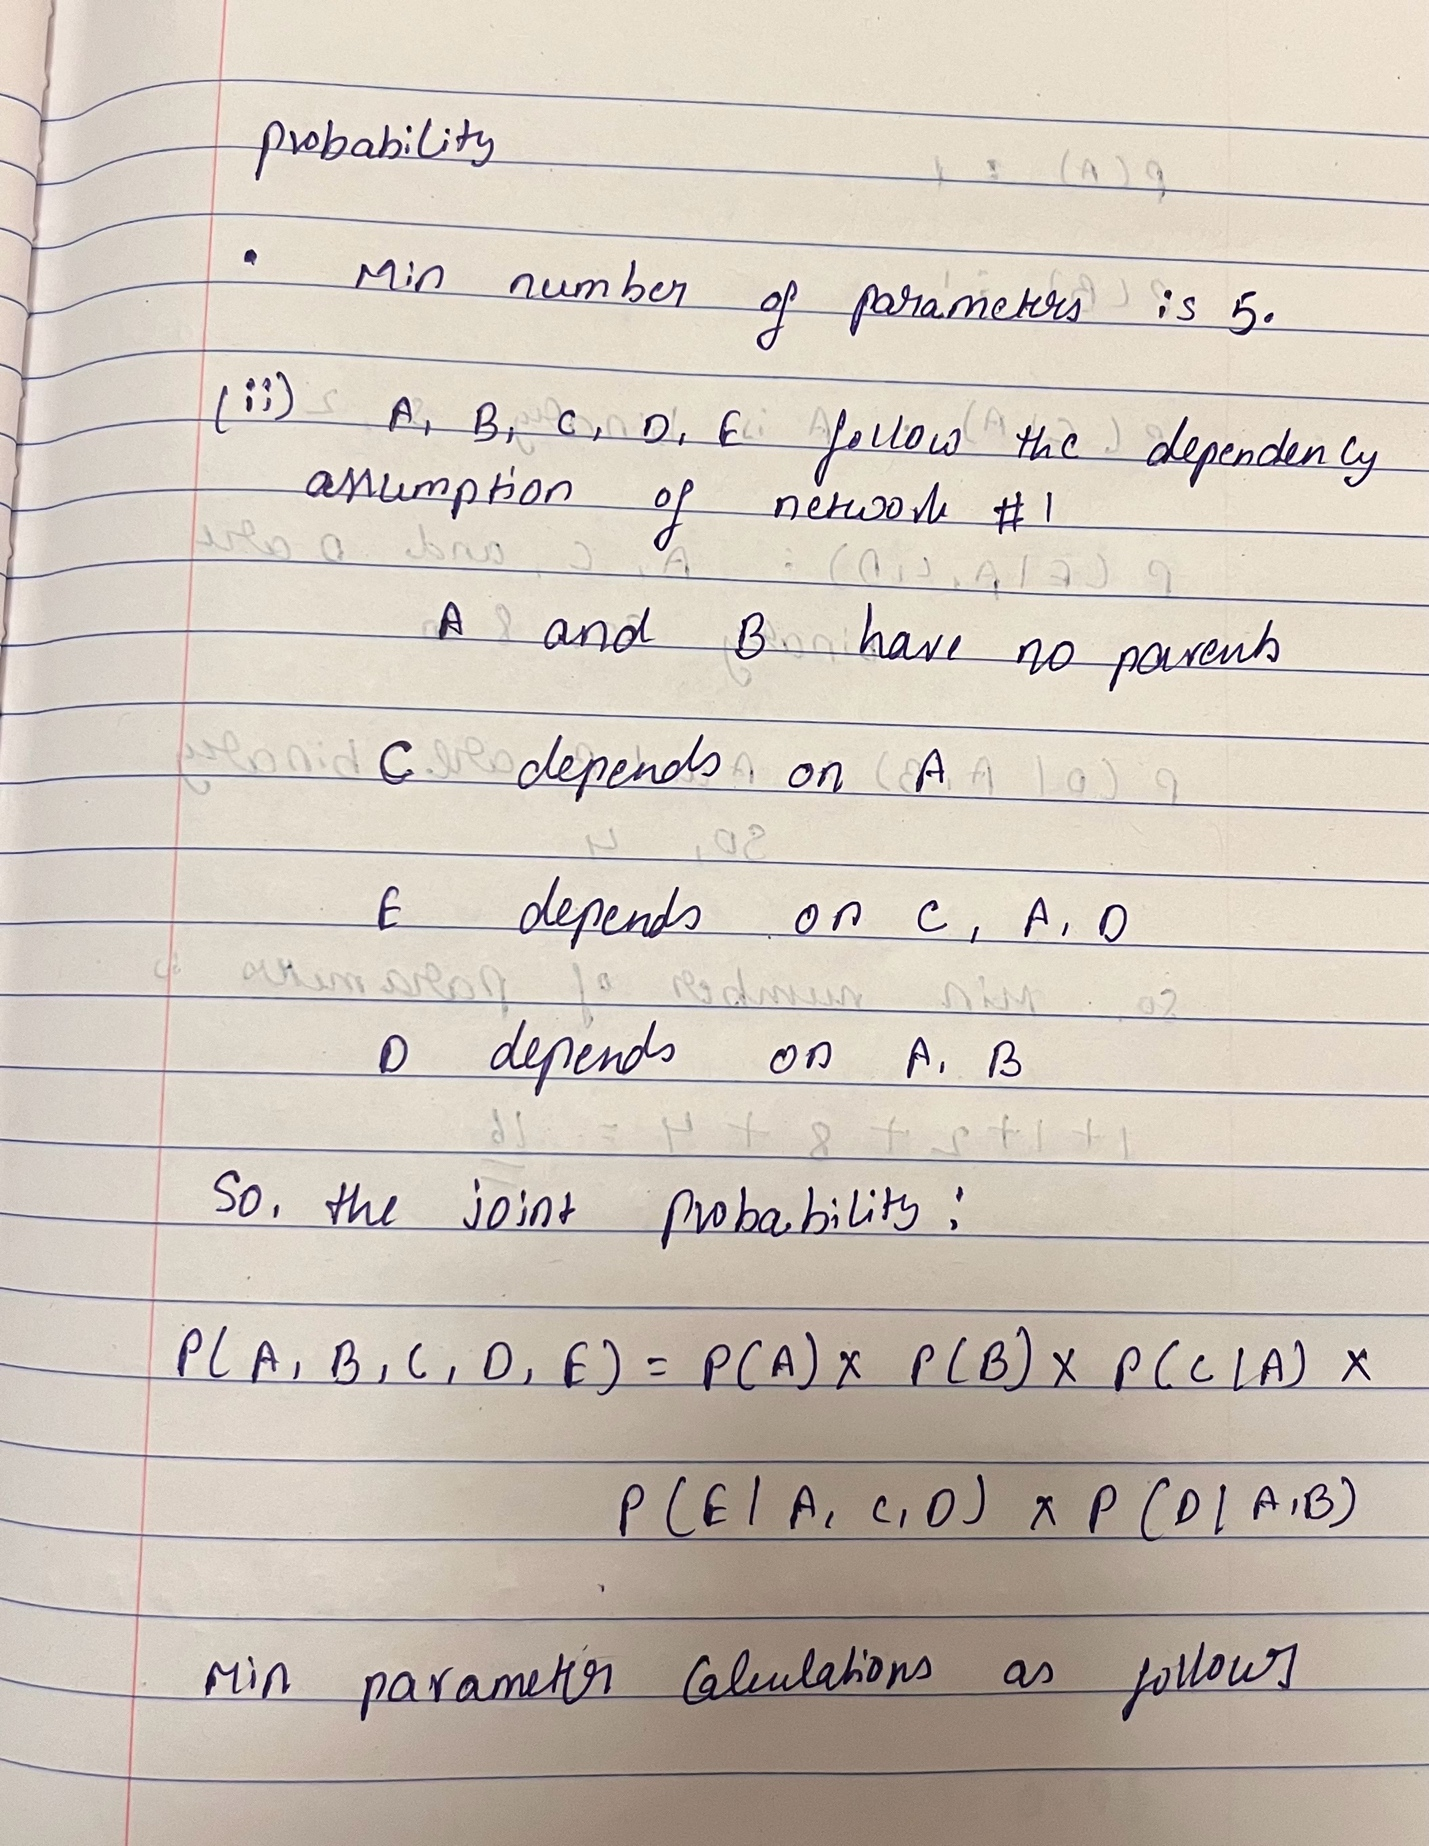 probability
• Min number of parameters is 5.
(ii) A, B, C, D, E follow the dependency
assumption of network #1
A and B have no parents
C depends on A
E depends on C, A, D
D depends on A, B
So, the joint probability:
P(A, B, C, D, E) = P(A) x P(B) x P(C|A) x
P(E|A, C, D) x P(D|A,B)
Min parameter Calculations as follows